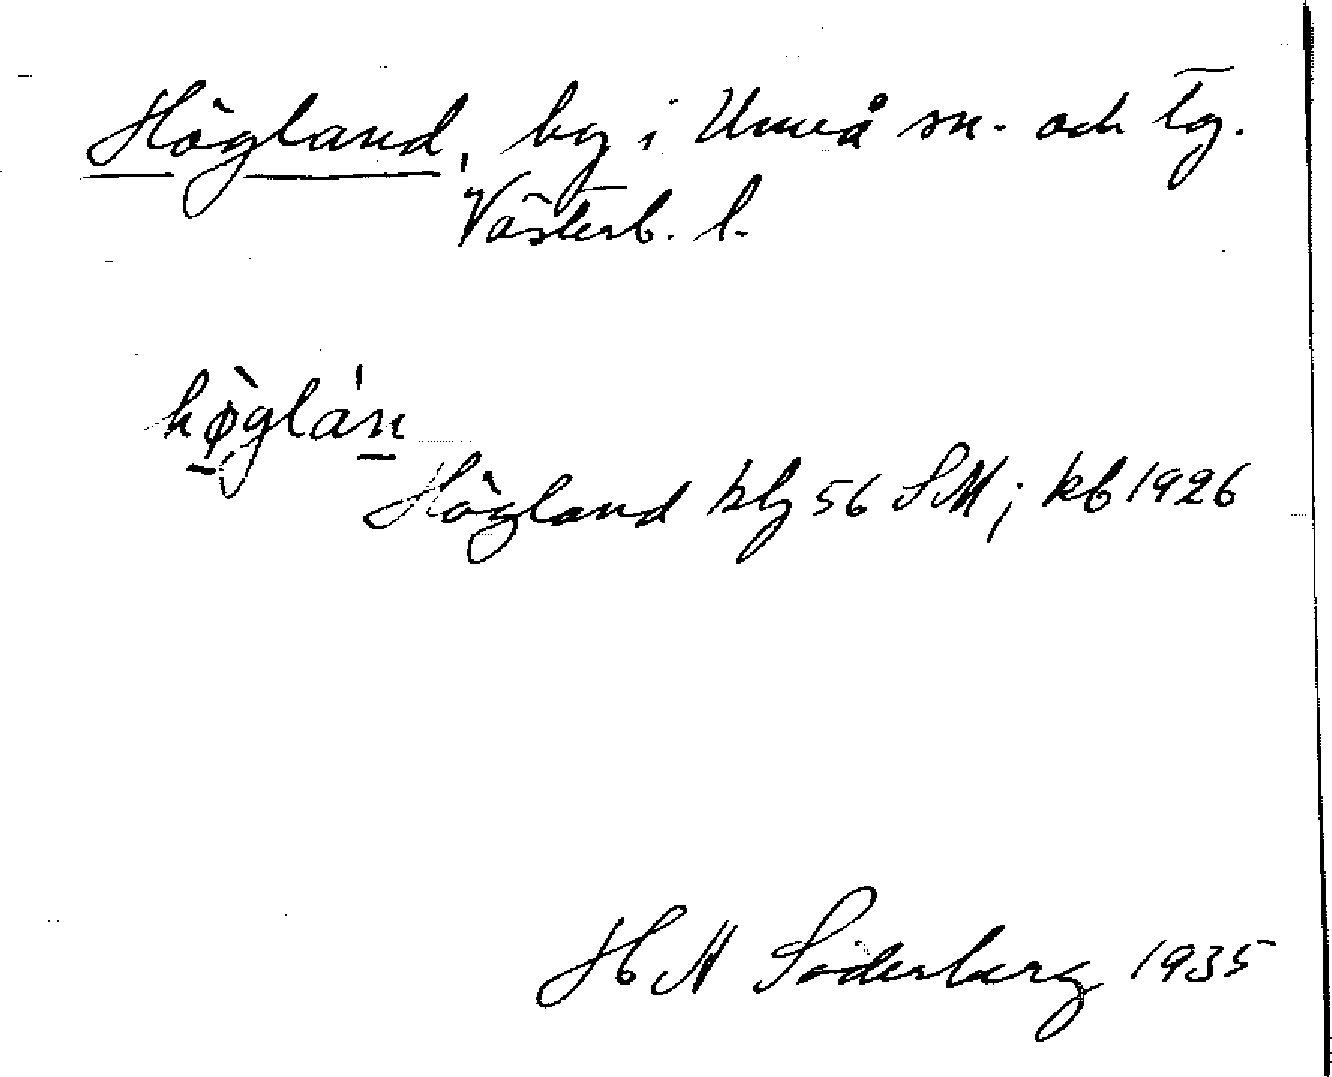 Högland, by i Umeå sn. och tg.
Västerb. l.
hø̀glá'n
Högland klg 56 SM; kb 1926
H M Söderberg 1935